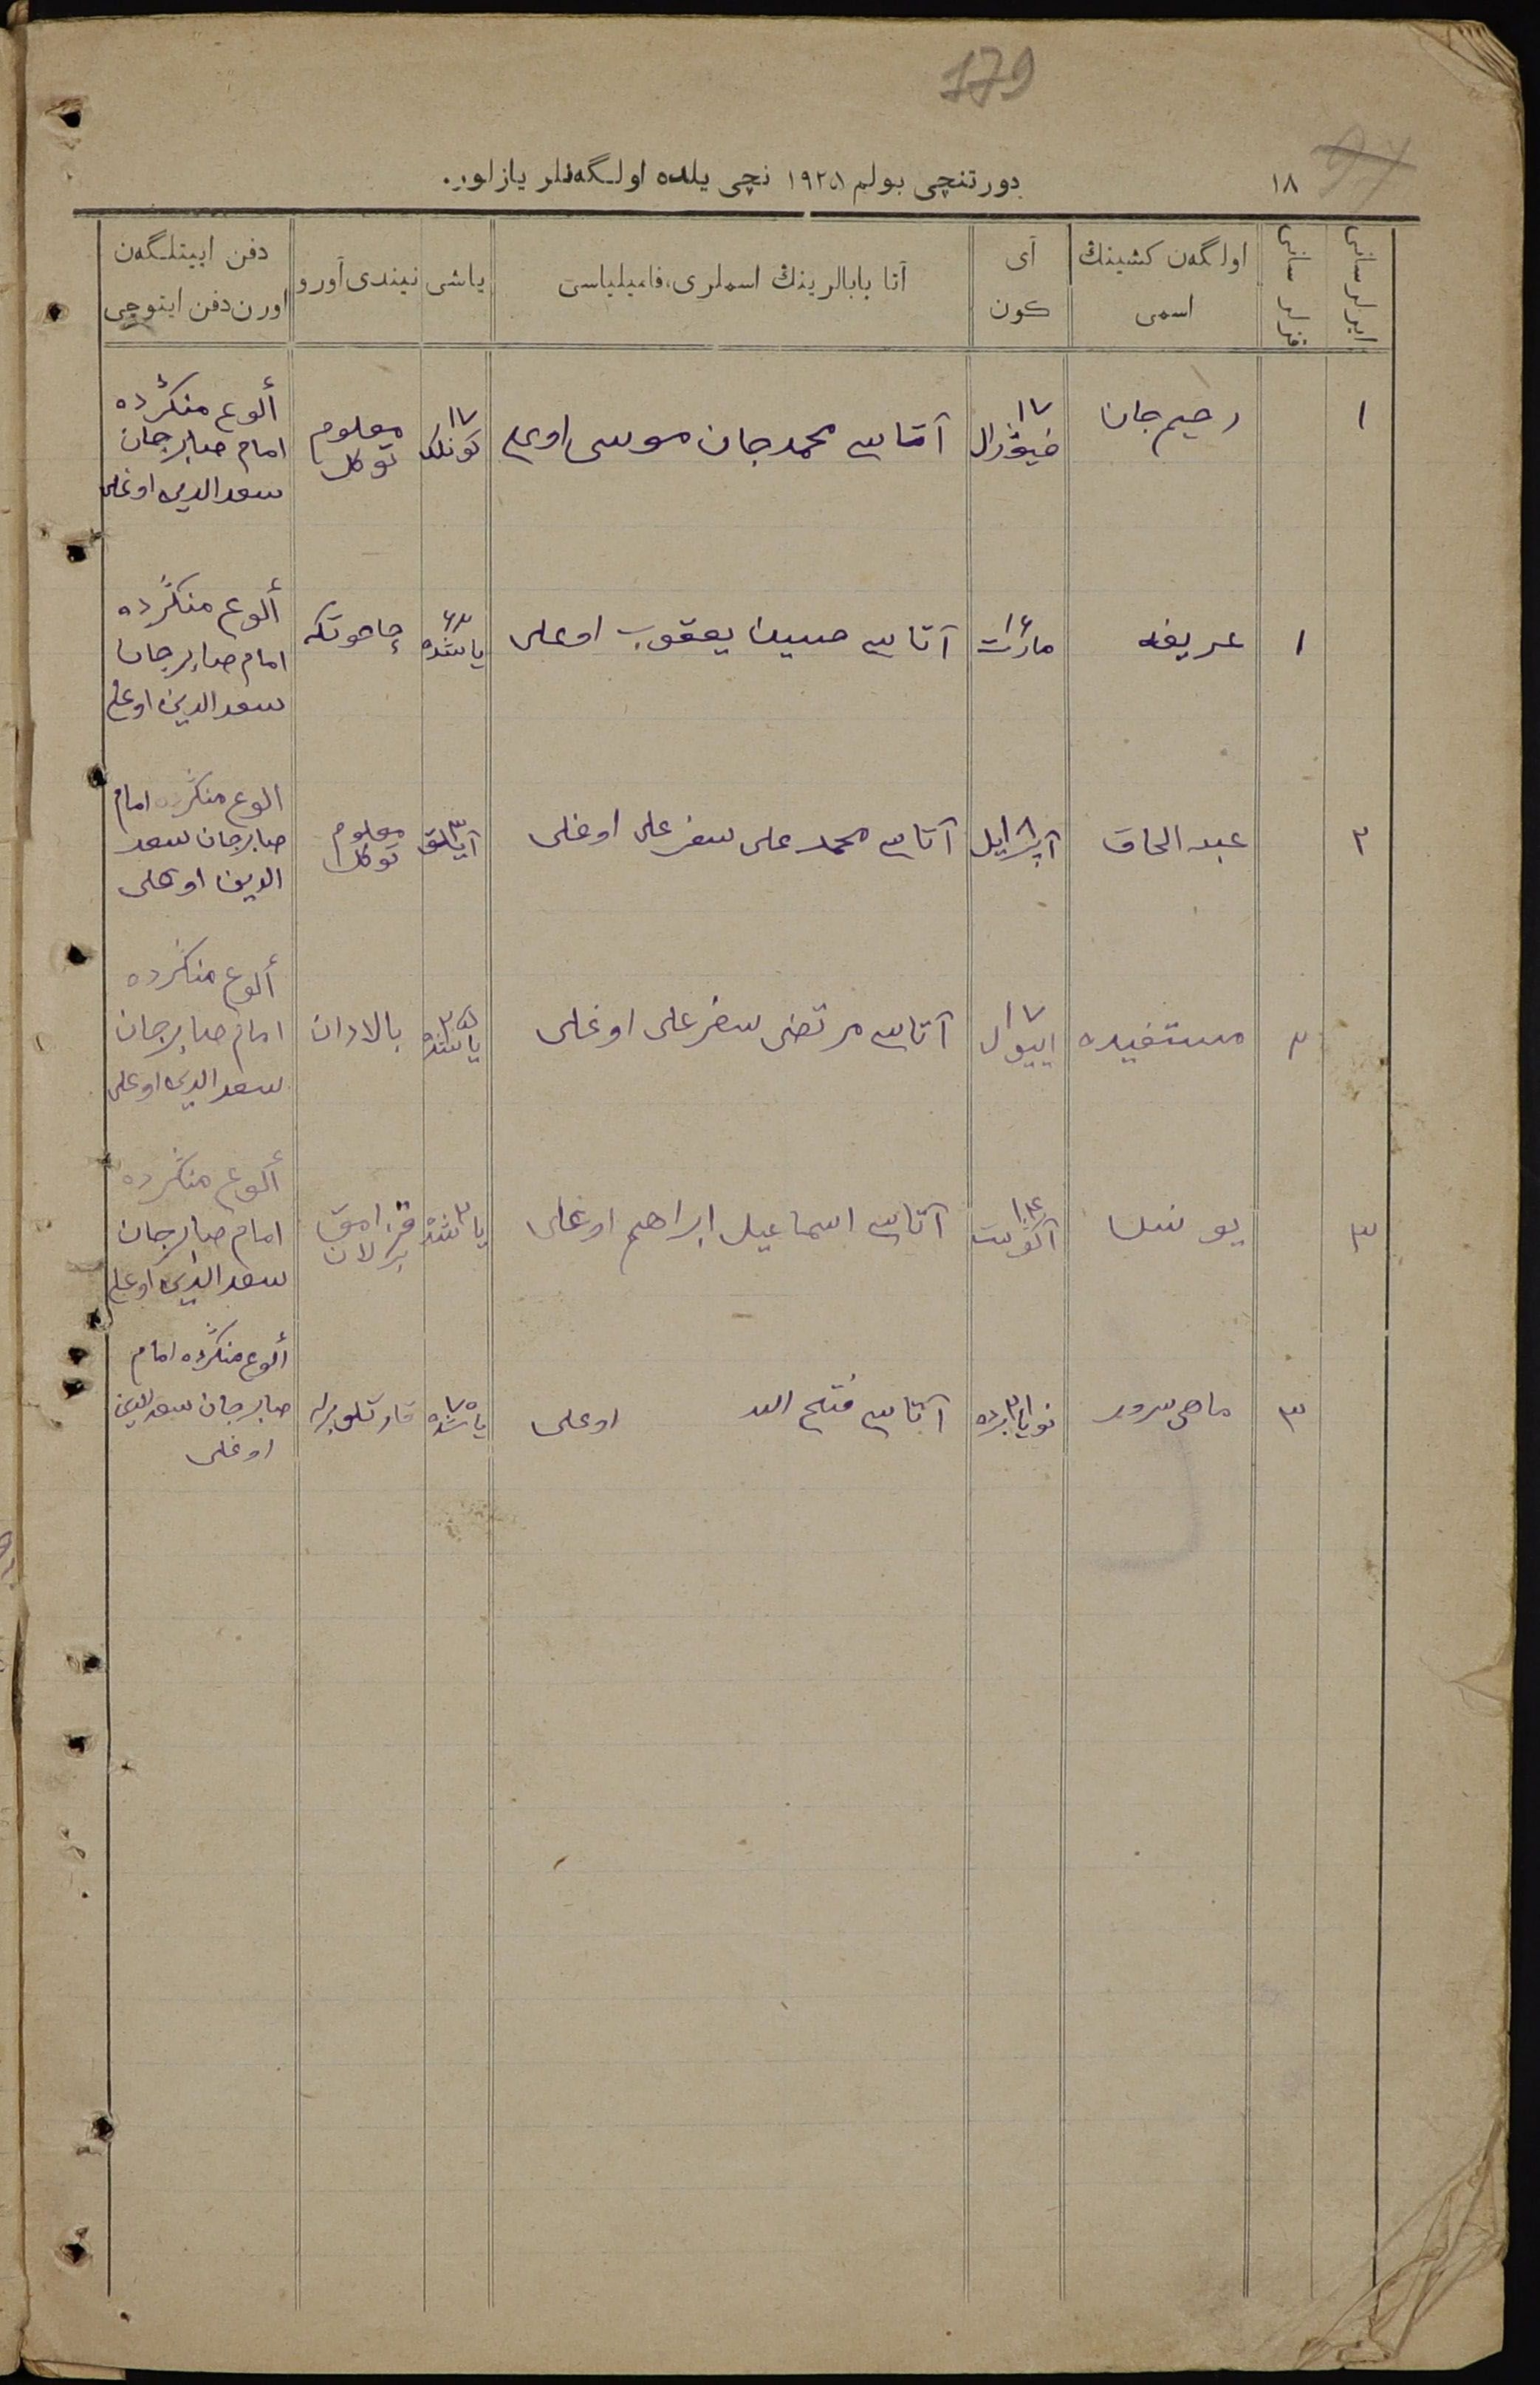 179
۱۸
دورتنچی بولم ۱۹۲۵ نچی یلده اولـگه‌نلر یازلور.
ایرلر سانی
قزلر سانی
اولگه‌ن کشینڭ اسمی
آی کون
آتا بابالرینڭ اسملری، فامیلیاسی
یاشی
نیندی آورو
دفن ایتلـگه‌ن اورن دفن ایتوچی
۱
رحیم جان
۱۷ فیورال
آتاسی محمدجان موسی اوغلی
۱۷ کونلک
معلوم توگل
ألوغ منگرده
امام صابرجان
سعدالدین اوغلی
۱
عریفه
۱۶ مارت
آتاسی حسین یعقوب اوغلی
۶۳ یاشنده
چاحوتکه
ألوغ منگرده
امام صابرجان
سعدالدین اوغلی
۲
عبدالحاق
۸ آپرایل
آتاسی محمدعلی سفرعلی اوغلی
۳ آیلق
معلوم توگل
الوغ منگرده امام
صابرجان سعد
الدین اوغلی
۲
مستفیده
۱۷ اییول
آتاسی مرتضی سفرعلی اوغلی
۲۵ یاشنده
بالادان
ألوغ منگرده
امام صابرجان
سعدالدین اوغلی
۳
یونس
۱۴ آگوست
آتاسی اسماعیل ابراهیم اوغلی
۲ یاشنده
قزامق برلان
ألوغ منگرده
امام صابرجان
سعدالدین اوغلی
۳
ماهی سرور
۲۱ نویابرده
آتاسی فتح الله اوغلی
۷۵ یاشده
قارتلق برله
ألوغ منگرده امام
صابرجان سعدالدین
اوغلی